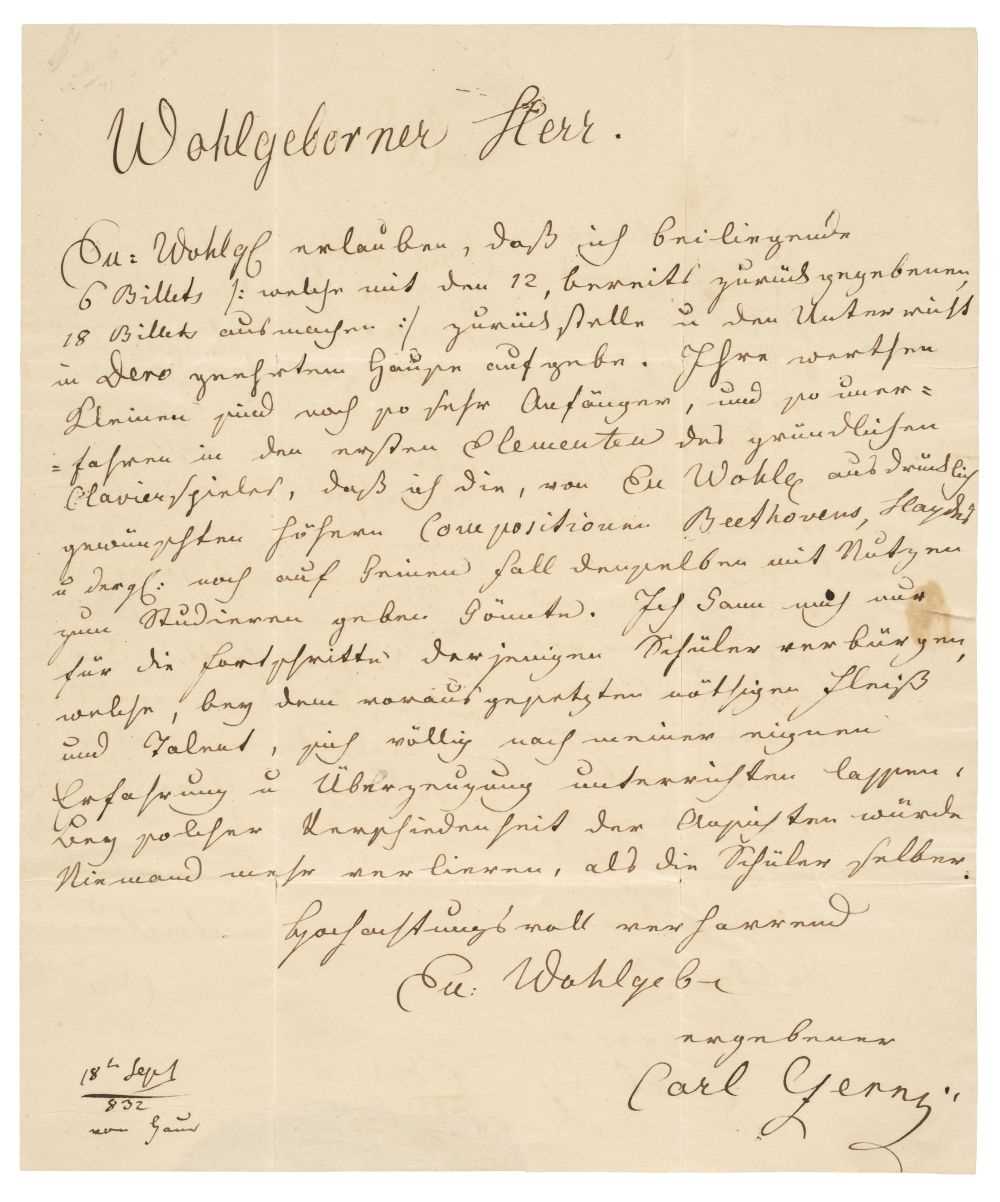 Wohlgeborner Herr.
Eu: Wohlg erlauben, daß ich beiliegende
6 Billets /: welche mit den 12, bereits zurückgegebenen,
18 Billets ausmachen :/ zurückstelle u den Unterricht
in Dero geehrtem Hause aufgebe. Ihre werthen
Kleinen sind noch so sehr Anfänger, und so uner=
=fahren in den ersten Elementen des gründlichen
Clavierspieles, daß ich die, von Eu Wohlg ausdrücklich
gewünschten höhern Compositionen Beethovens, Haydns
u dergl: noch auf keinen Fall denselben mit Nutzen
zum Studieren geben könnte. Ich kann mich nur
für die Fortschritte derjenigen Schüler verbürgen,
welche, bey dem vorausgesetzten nöthigen Fleiß
und Talent, sich völlig nach meiner eignen
Erfahrung u Überzeugung unterrichten lassen.
Bey solcher Verschiedenheit der Ansichten würde
Niemand mehr verlieren, als die Schüler selber.
Hochachtungsvoll verharrend
Eu: Wohlgeb
ergebener
Carl Czerny
18t Sept
832
von Haus